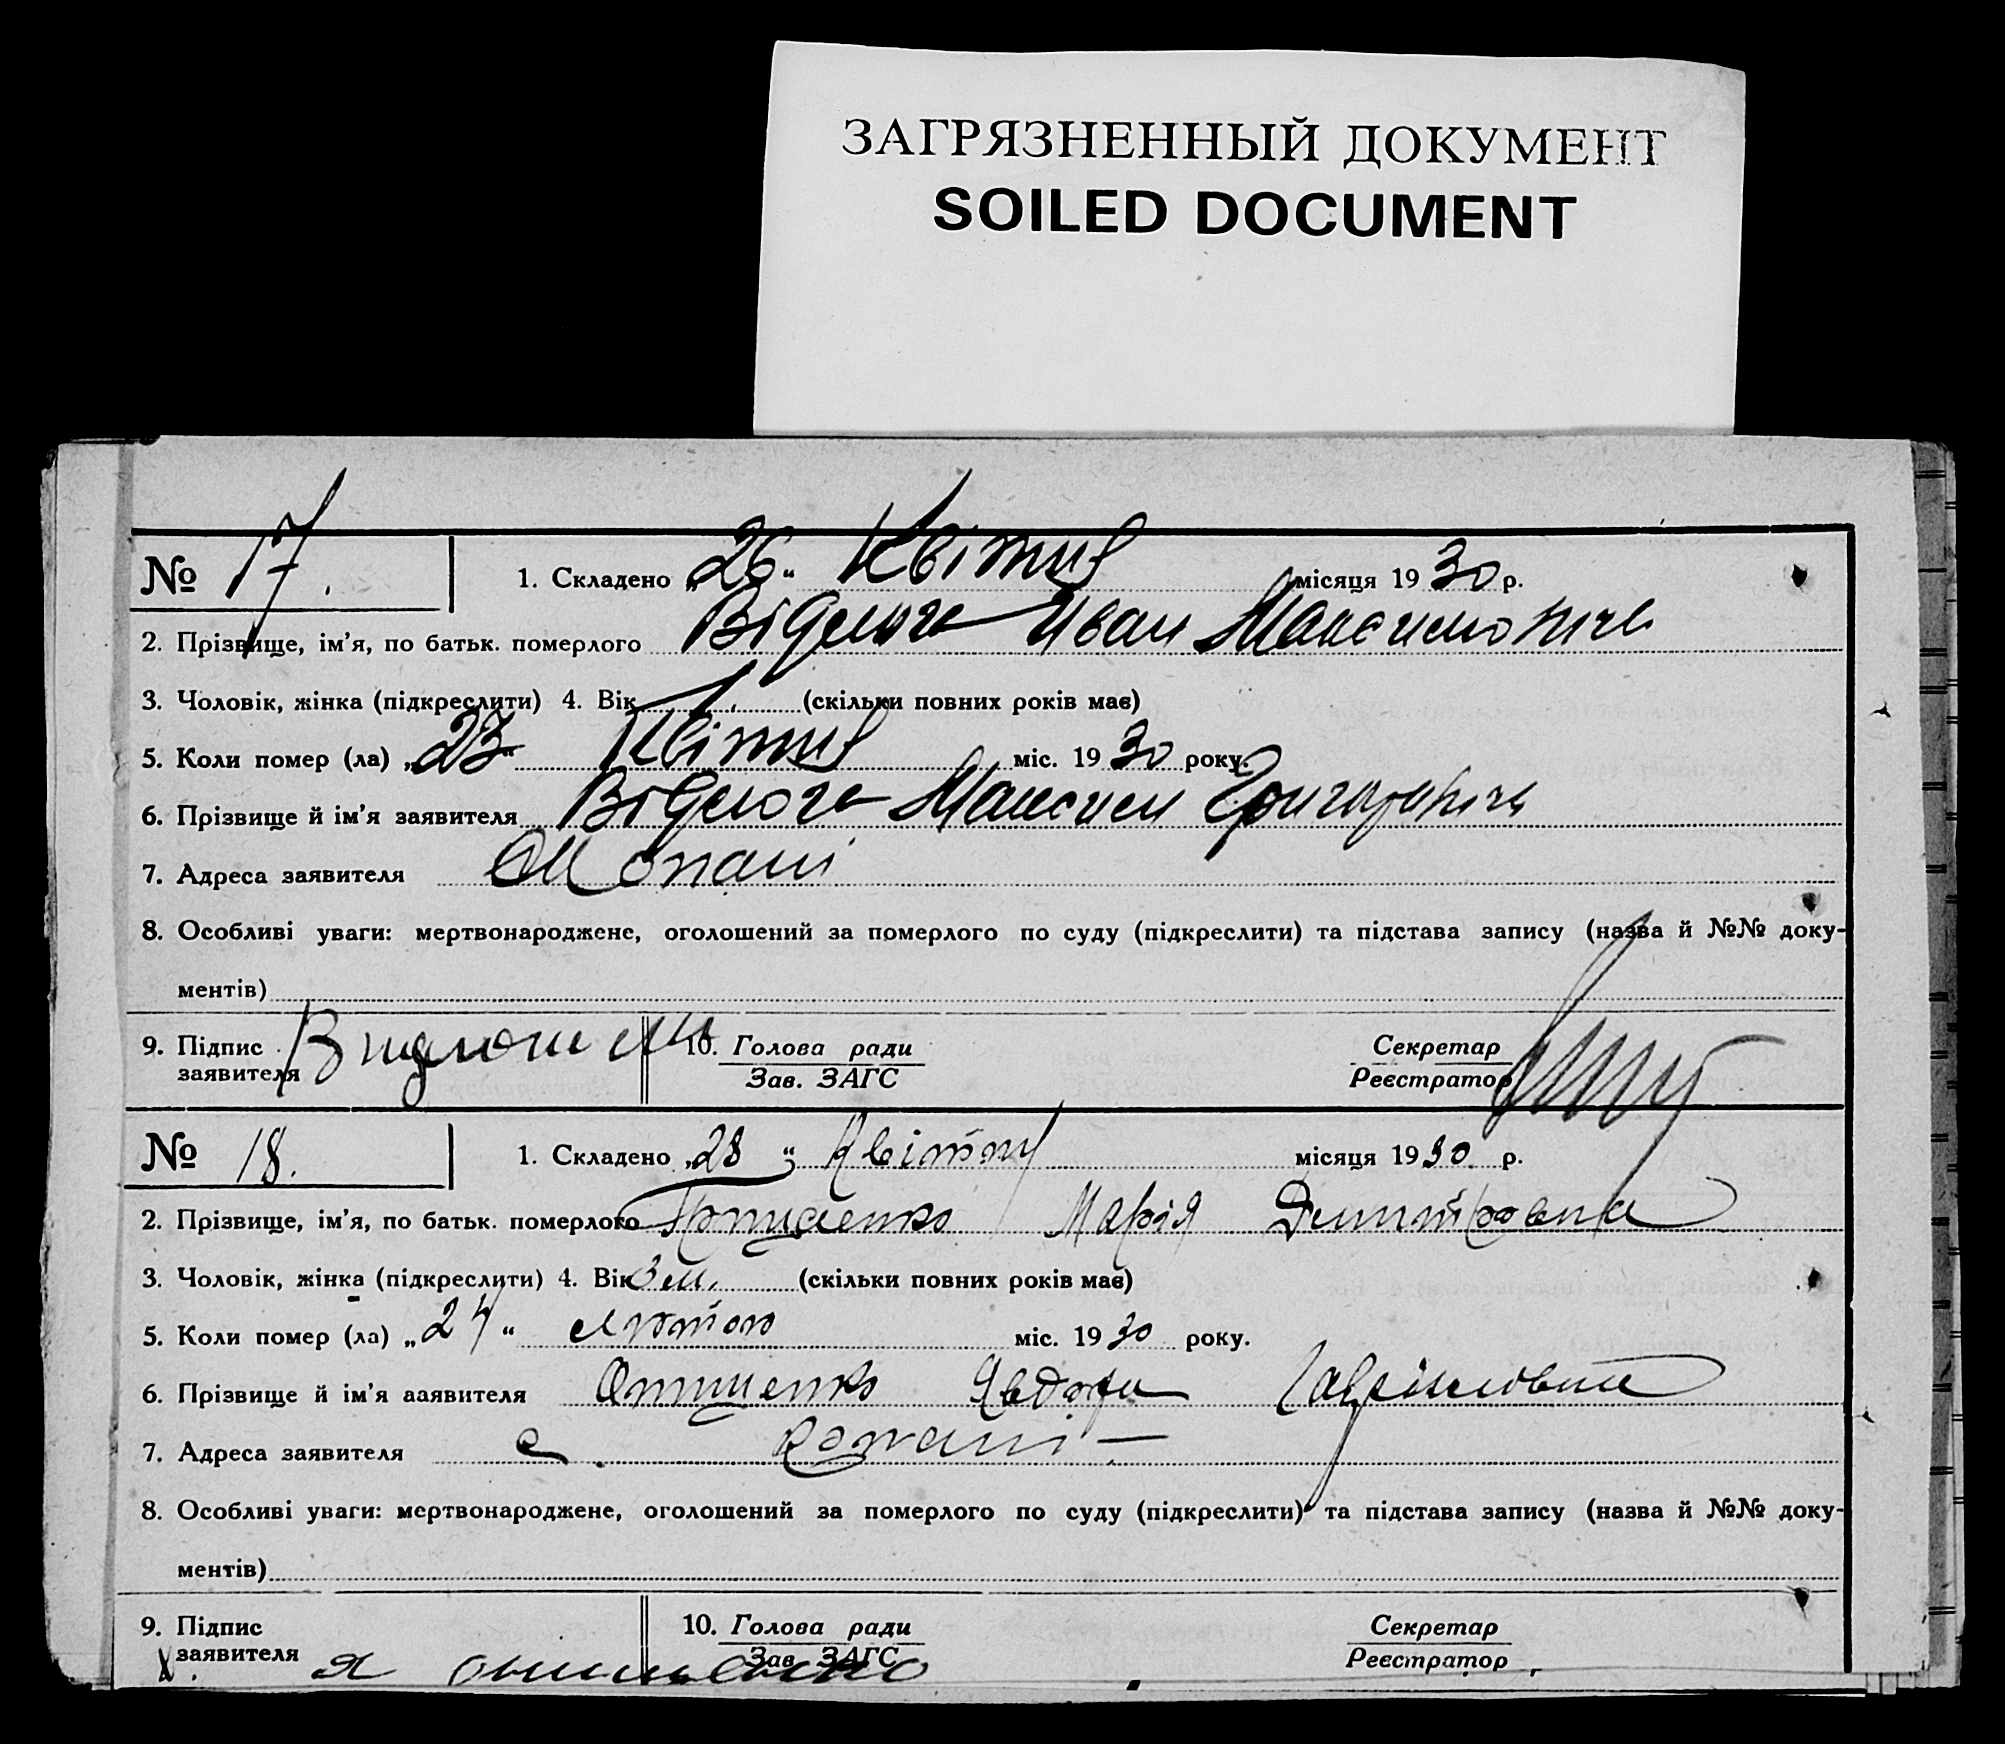 ЗАГРЯЗНЕННЫЙ ДОКУМЕНТ
SOILED DOCUMENT
№ 17.
1. Складено „26“ Квітня місяця 1930 р.
2. Прізвище, ім'я, по батьк. померлого Иван Максимович
3. Чоловік, жінка (підкреслити) 4. Вік (скільки повних років має)
5. Коли помер (ла) „23“ Квітня міс. 1930 року.
6. Прізвище й ім'я заявителя Максим Григорович
7. Адреса заявителя
8. Особливі уваги: мертвонароджене, оголошений за померлого по суду (підкреслити) та підстава запису (назва й №№ доку-
ментів)
9. Підпис
заявителя
10. Голова ради
Зав. ЗАГС
Секретар
Реєстратор
№ 18.
1. Складено „28“ Квітня місяця 1930 р.
2. Прізвище, ім'я, по батьк. померлого Марія Дмитровна
3. Чоловік, жінка (підкреслити) 4. Вік 3 м. (скільки повних років має)
5. Коли помер (ла) „24“ Лютого міс. 1930 року.
6. Прізвище й ім'я ааявителя Онищенко Явдоха
7. Адреса заявителя с.
8. Особливі уваги: мертвонароджене, оголошений за померлого по суду (підкреслити) та підстава запису (назва й №№ доку-
ментів)
9. Підпис
заявителя
10. Голова ради
Зав. ЗАГС
Секретар
Реєстратор